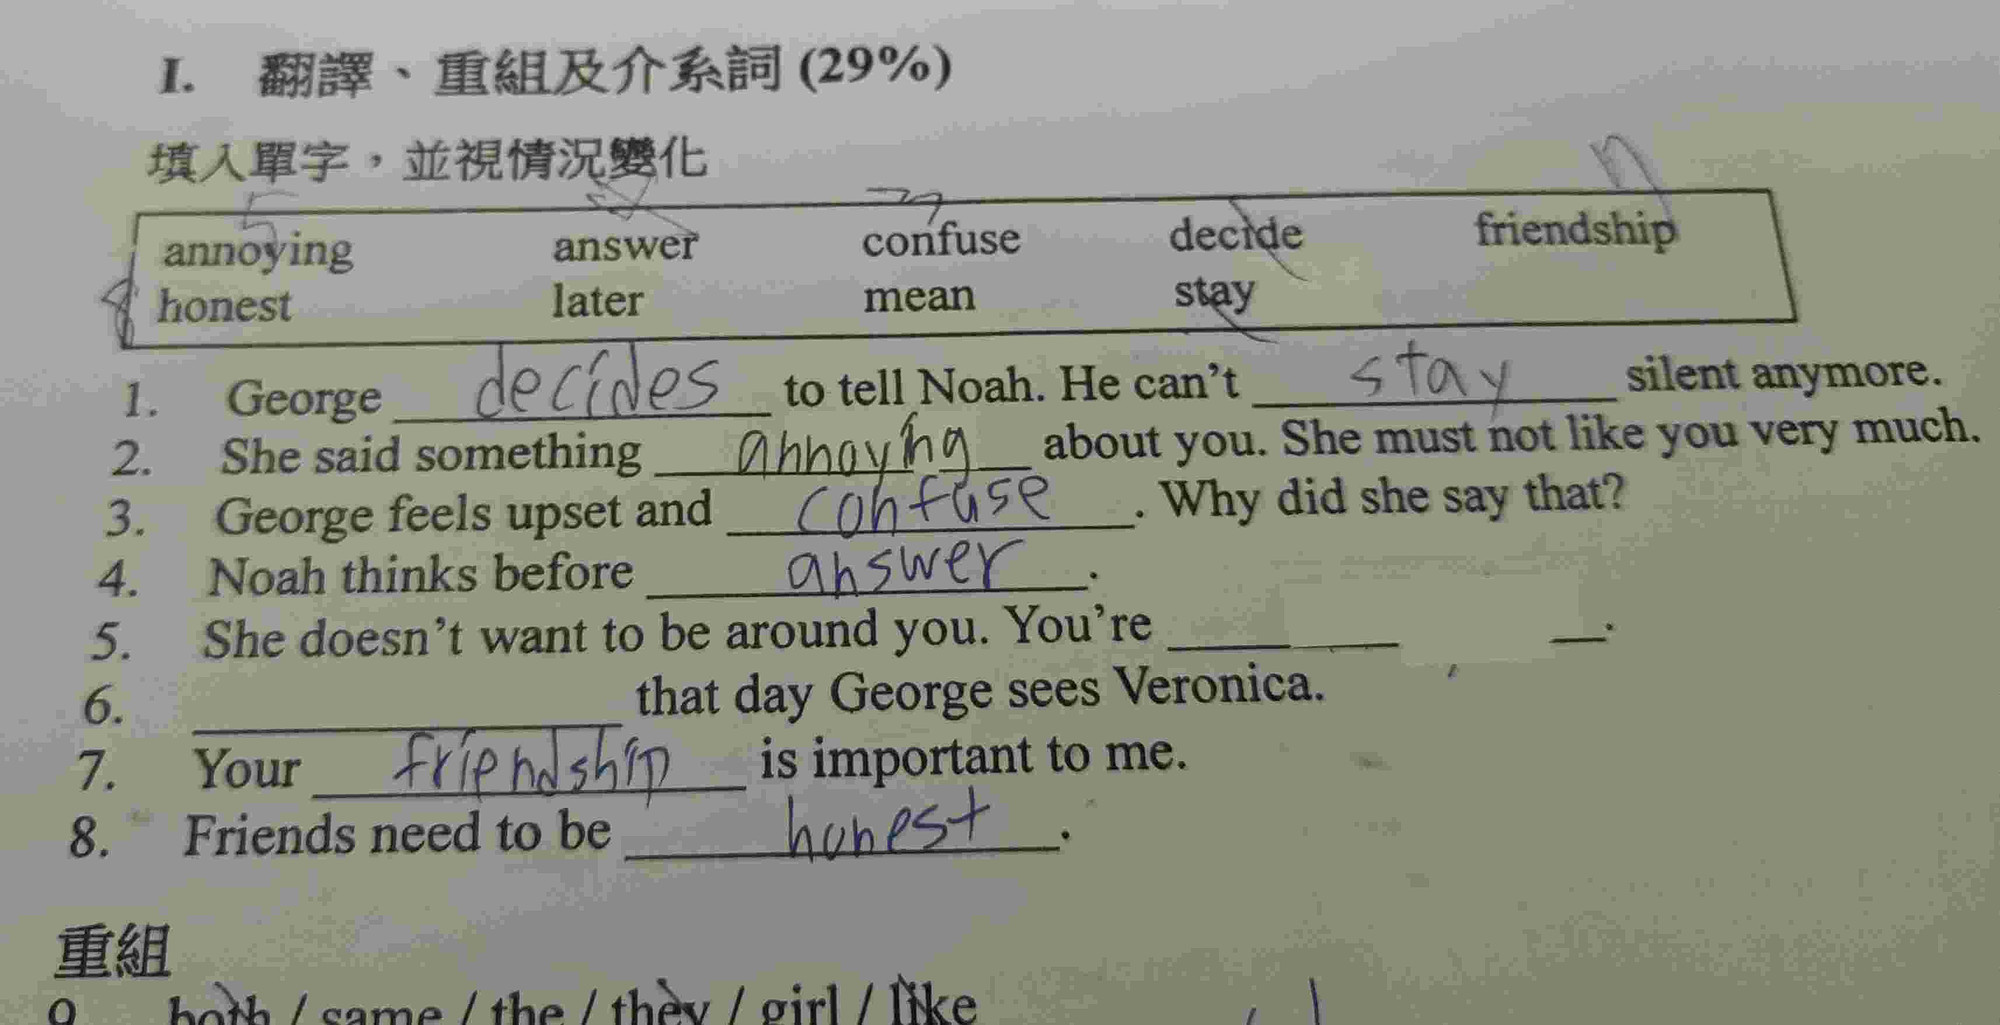 I. 翻譯、重組及介系詞 (29%)
填入單字，並視情況變化
annoying answer confuse decide friendship
honest later mean stay
1. George decides to tell Noah. He can't stay silent anymore.
2. She said something annoying about you. She must not like you very much.
3. George feels upset and confuse. Why did she say that?
4. Noah thinks before answer.
5. She doesn't want to be around you. You're ____.
6. ____ that day George sees Veronica.
7. Your friendship is important to me.
8. Friends need to be honest.
重組
9. both / same / the / they / girl / like